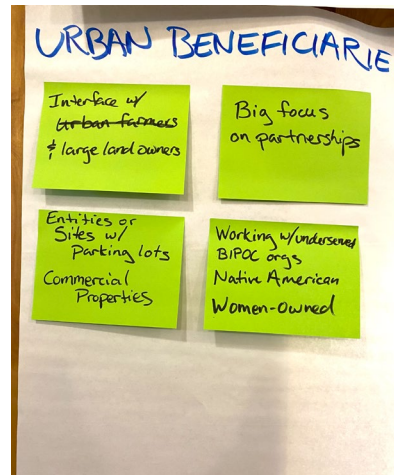 URBAN BENEFICIARIE
Interface w/
urban farmers
& large land owners
Big focus
on partnerships
Entities or
Sites w/
Parking lots
Commercial
Properties
Working w/underserved
BIPOC orgs
Native American
Women-Owned